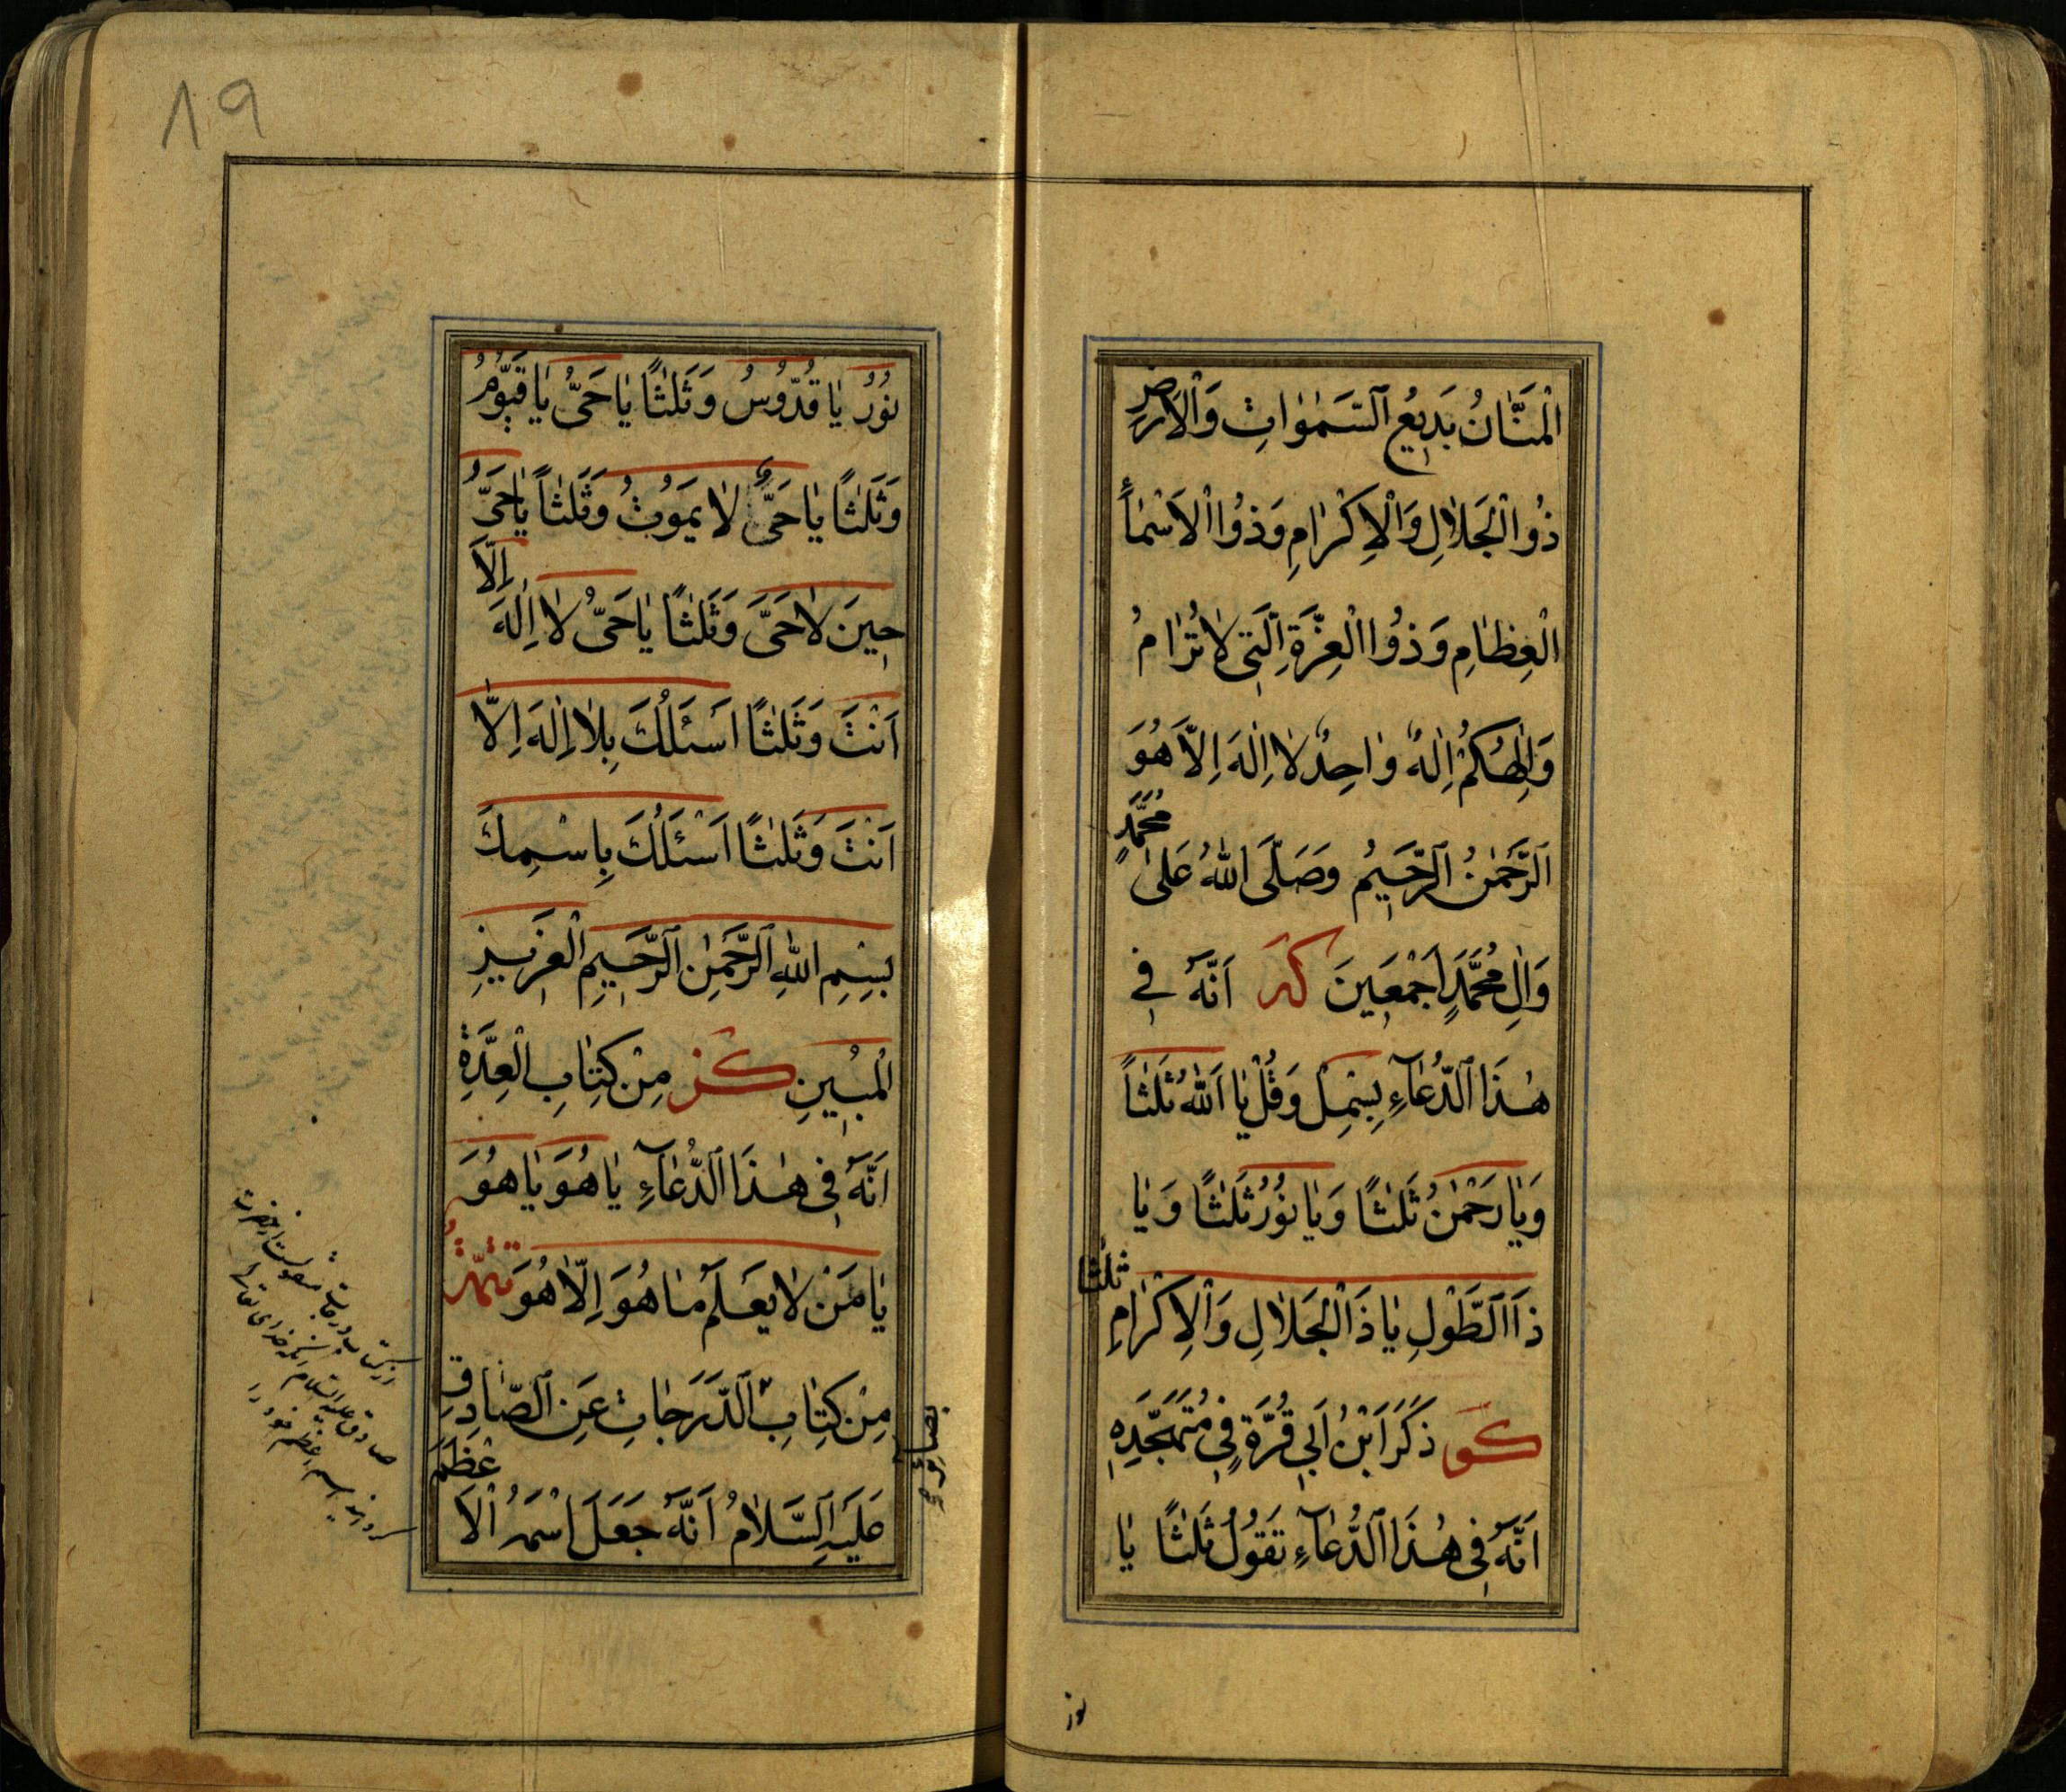 الْمَنَّانُ بَدِیعُ السَّمٰوٰاتِ وَالْاَرْضِ
ذُوالْجَلاٰلِ وَالْاِكْرٰامِ وَذُوا الْاَسْمٰآءِ
الْعِظٰامِ وَذُوا الْعِزَّةِ الَّتِی لاٰ تُرٰامُ
وَاِلٰهُكُمْ اِلٰهٌ وٰاحِدٌ لاٰ اِلٰهَ اِلاّٰ هُوَ
الرَّحْمٰنُ الرَّحِیمُ وَصَلَّی اللّٰهُ عَلیٰ مُحَمَّدٍ
وَاٰلِ مُحَمَّدٍ اَجْمَعِینَ كه اَنَّهُ فِی
هٰذَا الدُّعٰآءِ بِسْمِلْ وَقُلْ یٰا اَللّٰهُ ثَلٰثاً
وَیٰا رَحْمٰنُ ثَلٰثاً وَیٰا نُوْرُ ثَلٰثاً وَیٰا
ذَا الطَّوْلِ یٰا ذَا الْجَلاٰلِ وَالْاِكْرٰامِ ثلٰثا
كو ذَكَرَ ابْنُ اَبِی قُرَّةٍ فِی مُتَهَجَّدِهِ
اَنَّهُ فِی هٰذَا الدُّعٰآءِ تَقُوْلُ ثَلٰثاً یٰا
نور
١٩
نُوْرُ یٰا قُدُّوْسُ وَثَلٰثاً یٰا حَیُّ یٰا قَیُّوْمُ
وَثَلٰثاً یٰا حَیُّ لاٰ یَمُوْتُ وَثَلٰثاً یٰا حَیُّ
حِینَ لاٰ حَیَّ وَثَلٰثاً یٰا حَیُّ لاٰ اِلٰهَ اِلاّٰ
اَنْتَ وَثَلٰثاً اَسْئَلُكَ بِلاٰ اِلٰهَ اِلاّٰ
اَنْتَ وَثَلٰثاً اَسْئَلُكَ بِاسْمِكَ
بِسْمِ اللّٰهِ الرَّحْمٰنِ الرَّحِیمِ الْعَزِیزِ
الْمُبِینِ كز مِنْ كِتٰابِ الْعِدَّةِ
اَنَّهُ فِی هٰذَا الدُّعٰآءِ یٰا هُوَ یٰا هُوَ
یٰا مَنْ لاٰ یَعْلَمُ مٰا هُوَ اِلاّٰ هُوَ تتمّة
مِنْ كِتٰابِ الدَّرَجٰاتِ عَنِ الصّٰادِقِ
عَلَیْهِ السَّلاٰمُ اَنَّهُ جَعَلَ اسْمَهُ الْاَعْظَمَ
بصائر